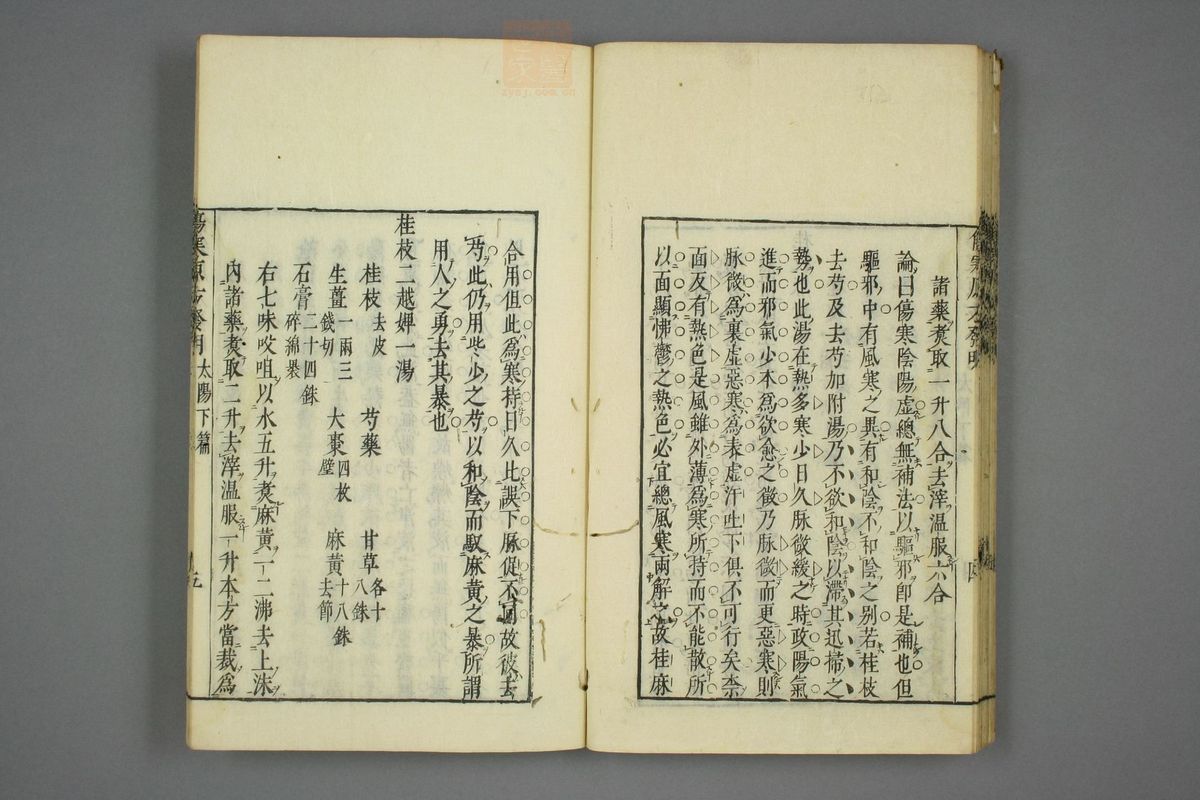 諸藥煑取一升八合去滓温服六合
論曰傷寒陰陽虛總無補法以驅邪卽是補也但
驅邪中有風寒之異有和陰不和陰之别若桂枝
去芍及去芍加附湯乃不欲和陰以滯其迅掃之
勢也此湯在熱多寒少日久脉微緩之時政陽氣
進而邪氣少本爲欲愈之徵乃脉微而更惡寒則
脉微爲裏虛惡寒爲表虛汗吐下俱不可行矣柰
面反有熱色是風雖外薄爲寒所持而不能散所
以面顯怫鬱之熱色必宜總風寒兩解之故桂麻
合用但此爲寒持日久比誤下脉促不同故彼去
芍此仍用些少之芍以和陰而馭麻黄之暴所謂
用人之勇去其暴也
桂枝二越婢一湯
桂枝去皮 芍藥 甘草各十八銖
生薑一兩三錢切 大棗四枚擘 麻黄十八銖去節
石膏二十四銖碎綿裹
右七味㕮咀以水五升煑麻黄一二沸去上沫
内諸藥煑取二升去滓温服一升本方當裁爲
太陽下篇
zycj.com.cn